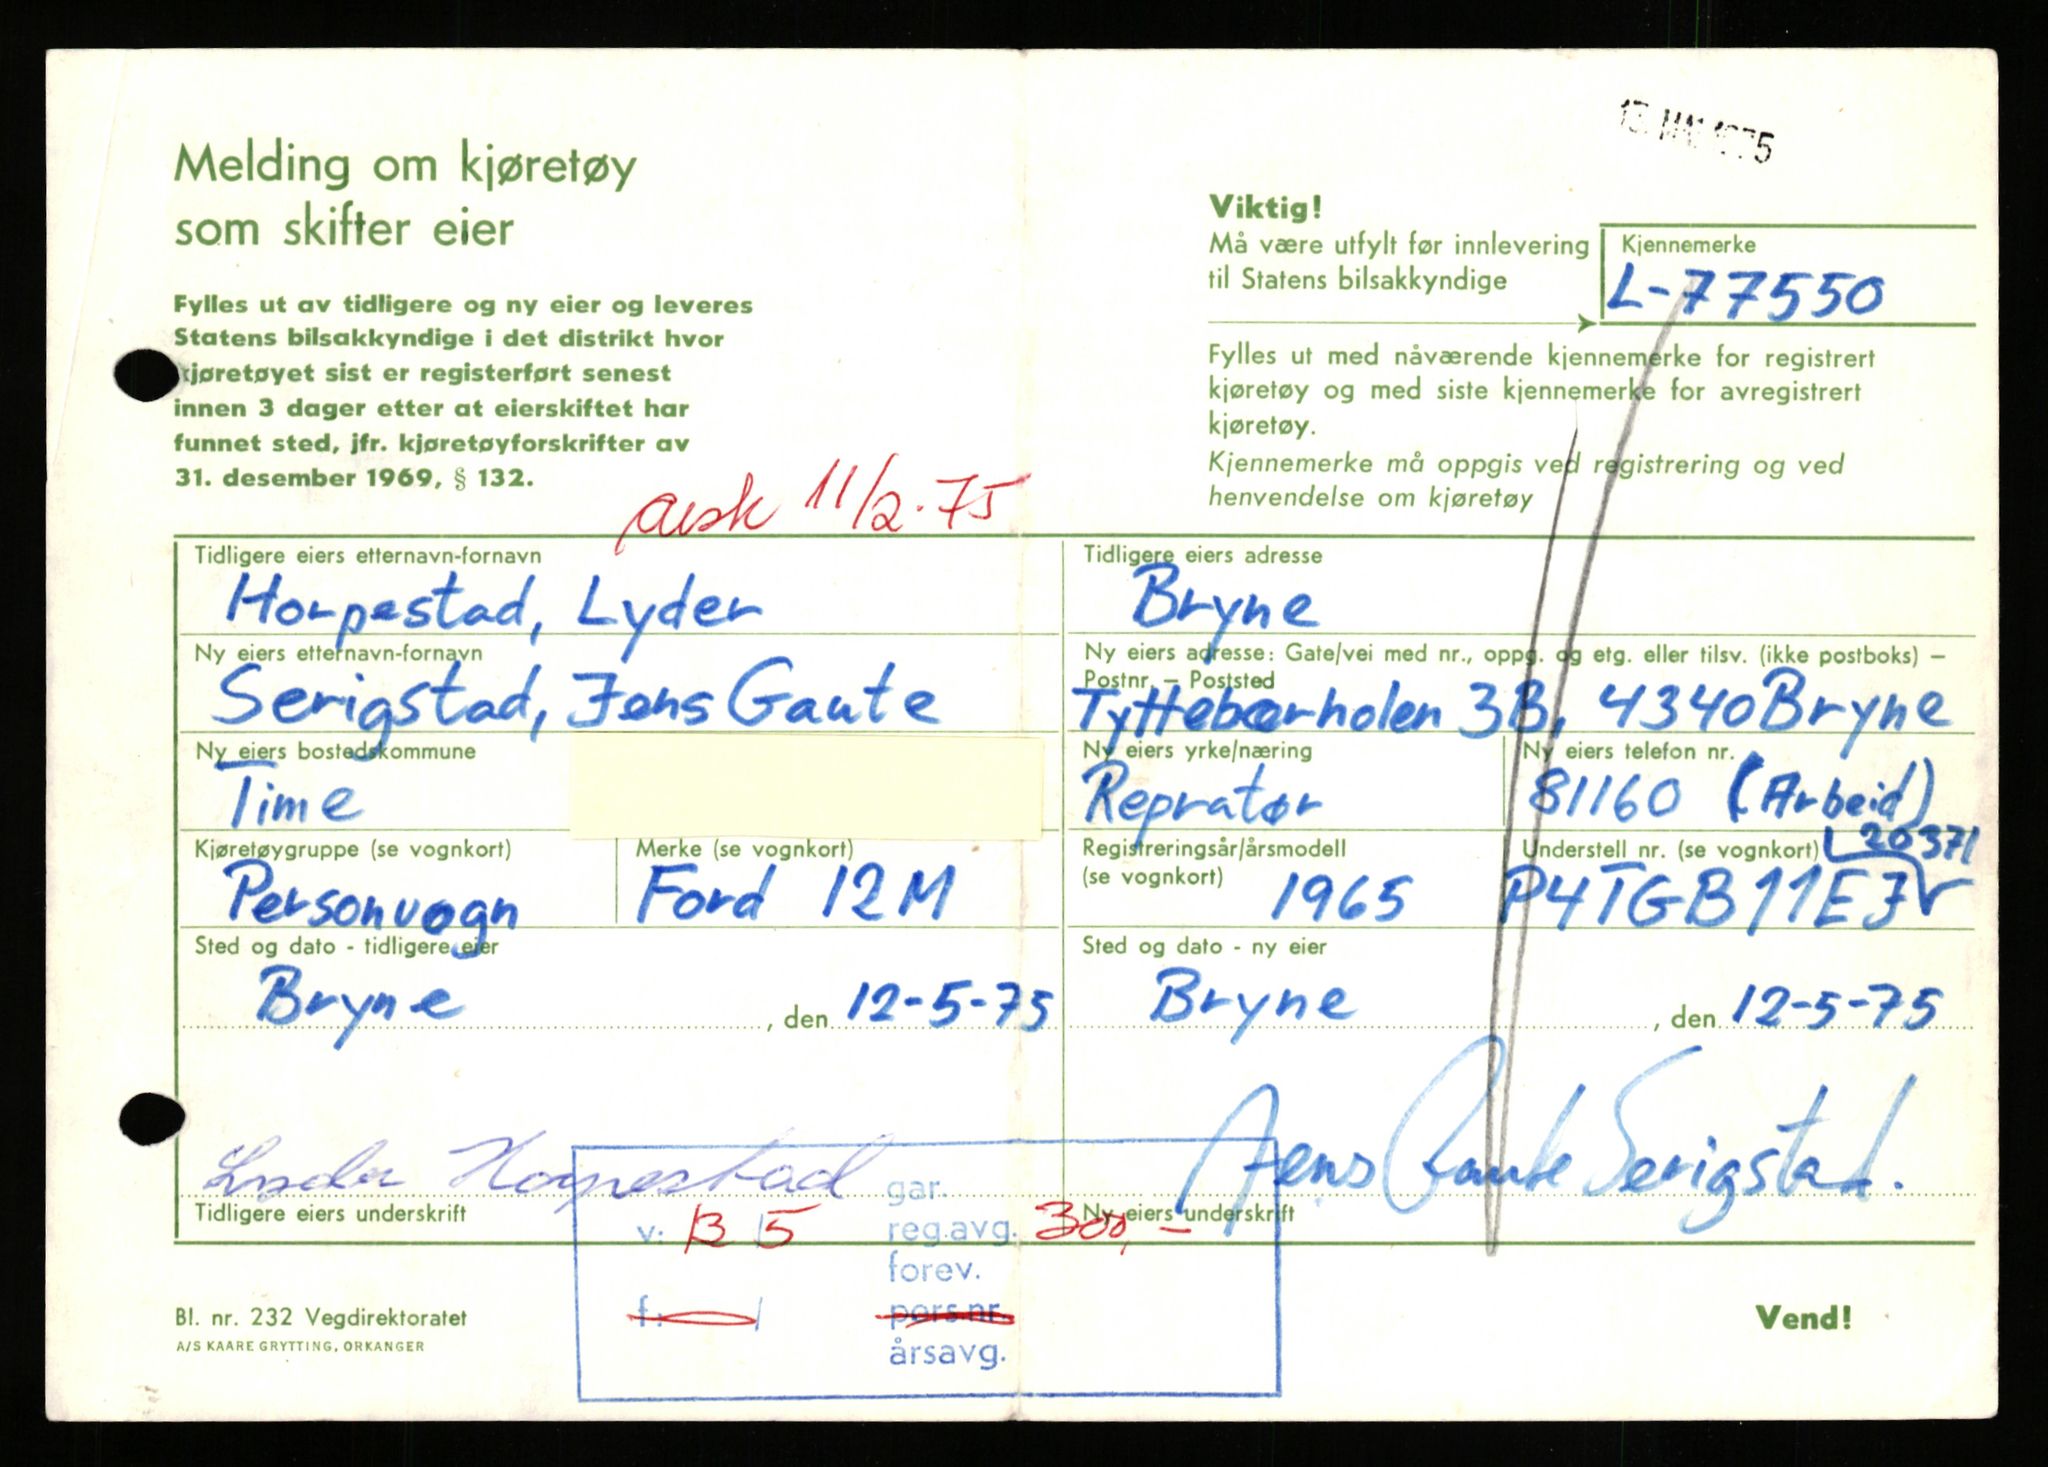 Melding om kjøretøy
som skifter eier
Fylles ut av tidligere og ny eier og leveres
Statens bilsakkyndige i det distrikt hvor
kjøretøyet sist er registerført senest
innen 3 dager etter at eierskiftet har
funnet sted, jfr. kjøretøyforskrifter av
31. desember 1969, § 132.
13 MAI 1975
Viktig!
Må være utfylt før innlevering
til Statens bilsakkyndige
Kjennemerke
L-77550
Fylles ut med nåværende kjennemerke for registrert
kjøretøy og med siste kjennemerke for avregistrert
kjøretøy.
Kjennemerke må oppgis ved registrering og ved
henvendelse om kjøretøy
avsk 11/2-75
Tidligere eiers etternavn-fornavn
Horpestad, Lyder
Tidligere eiers adresse
Bryne
Ny eiers etternavn-fornavn
Serigstad, Jens Gaute
Ny eiers adresse: Gate/vei med nr., oppg. og etg. eller tilsv. (ikke postboks) –
Postnr. – Poststed
Tyttebærholen 3B, 4340 Bryne
Ny eiers bostedskommune
Time
Ny eiers yrke/næring
Repratør
Ny eiers telefon nr.
81160 (Arbeid)
Kjøretøygruppe (se vognkort)
Personvogn
Merke (se vognkort)
Ford 12M
Registreringsår/årsmodell
(se vognkort)
1965
Understell nr. (se vognkort)
20371
P4TGB11EJ
Sted og dato - tidligere eier
Bryne, den 12-5-75
Sted og dato - ny eier
Bryne, den 12-5-75
Lyder Horpestad
Tidligere eiers underskrift
Jens Gaute Serigstad.
Ny eiers underskrift
gar.
v: B 5
reg.avg. 300,-
forev.
f:
pers.nr.
årsavg.
Bl. nr. 232 Vegdirektoratet
A/S KAARE GRYTTING, ORKANGER
Vend!